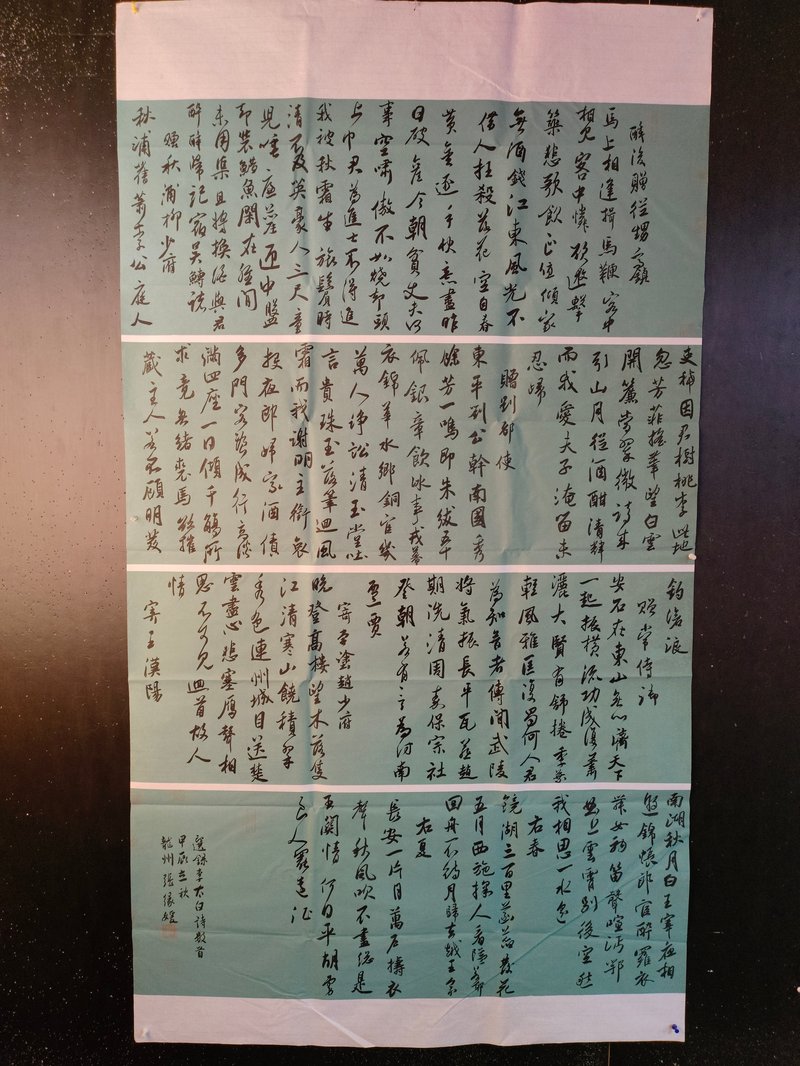 醉後贈從甥高鎮
馬上相逢揖馬鞭客中
相見客中憐欲邀擊
築悲歌飲正值傾家
無酒錢江東風光不
借人枉殺落花空自春
黃金逐手快意盡昨
日破產今朝貧丈夫何
事空嘯傲不如燒卻頭
上巾君為進士不得進
我被秋霜生旅鬢時
清不及英豪人三尺童
兒唾廉藺匣中盤
劍裝䱜魚閑在腰間
未用渠且將換酒與君
醉醉歸託宿吳鱄諸
贈秋浦柳少府
秋浦舊蕭索公庭人
吏稀因君樹桃李此地
忽芳菲搖筆望白雲
開簾當翠微時來
引山月縱酒酣清輝
而我愛夫子淹留未
忍歸
贈劉都使
東平劉公幹南國秀
餘芳一鳴即朱紱五十
佩銀章飲冰事戎幕
衣錦華水鄉銅官幾
萬人諍訟清玉堂吐
言貴珠玉落筆迴風
霜而我謝明主銜哀
投夜郎歸家酒債
多門客粲成行高談
滿四座一日傾千觴所
求竟無緒裘馬欲摧
藏主人若不顧明發
釣滄浪
贈常侍御
安石在東山無心濟天下
一起振橫流功成復蕭
灑大賢有舒捲季葉
輕風雅匡復屬何人君
為知音者傳聞武陵
將氣振長平瓦燕趙
期洗清周秦保宗社
登朝若有言為訪南
遷賈
寄當塗趙少府
晚登高樓望木落雙
江清寒山饒積翠
秀色連州城目送楚
雲盡心悲塞鴈聲相
思不可見迴首故人
情
寄王漢陽
南湖秋月白王宰夜相
邀錦帳郎官醉羅衣
舞女嬌笛聲喧沔鄂
曲上雲霄別後空愁
我相思一水遙
右春
鏡湖三百里菡萏發荷花
五月西施採人看隘若耶
回舟不待月歸去越王家
右夏
長安一片月萬戶擣衣
聲秋風吹不盡總是
玉關情何日平胡虜
良人罷遠征
選錄李太白詩數首
甲辰立秋
龍州張